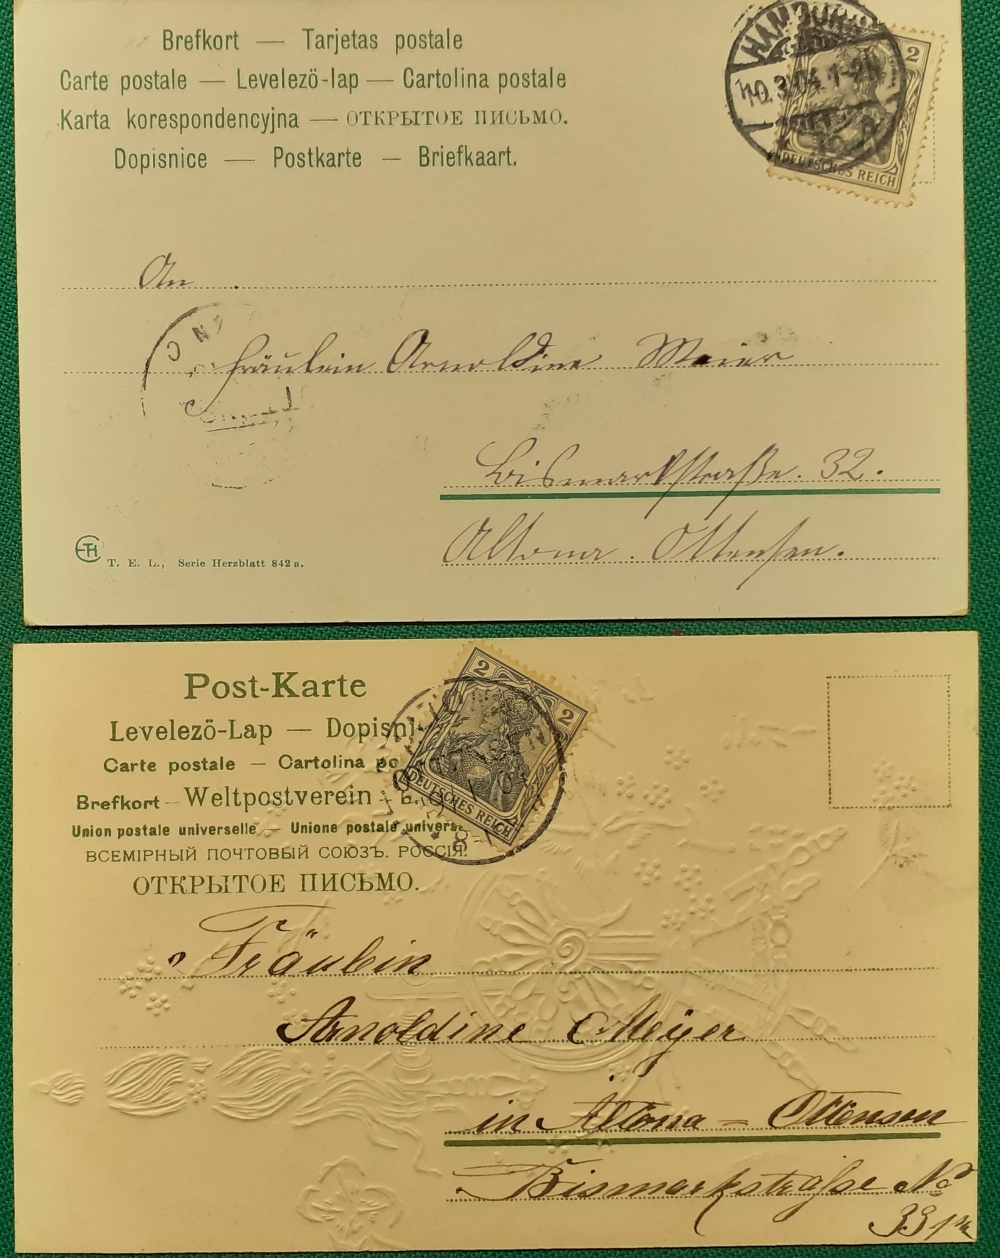 Brefkort — Tarjetas postale
Carte postale — Levelezö-lap — Cartolina postale
Karta korespondencyjna — ОТКРЫТОЕ ПИСЬМО.
Dopisnice — Postkarte — Briefkaart.
HAMBURG
10.3.04.1-2N
2
DEUTSCHES REICH
An
Fräulein Arnoldine Meier
Bismarkstraße. 32.
Altona. Ottensen.
T. E. L., Serie Herzblatt 842 a.
Post-Karte
Levelezö-Lap — Dopisni
Carte postale — Cartolina po
Brefkort — Weltpostverein —
Union postale universelle — Unione postale univers
ВСЕМІРНЫЙ ПОЧТОВЫЙ СОЮЗЪ. РОССІЯ.
ОТКРЫТОЕ ПИСЬМО.
2 2
DEUTSCHES REICH
Fräulein
Arnoldine Meÿer
in Altona = Ottensen
Bismarkstraße No
33